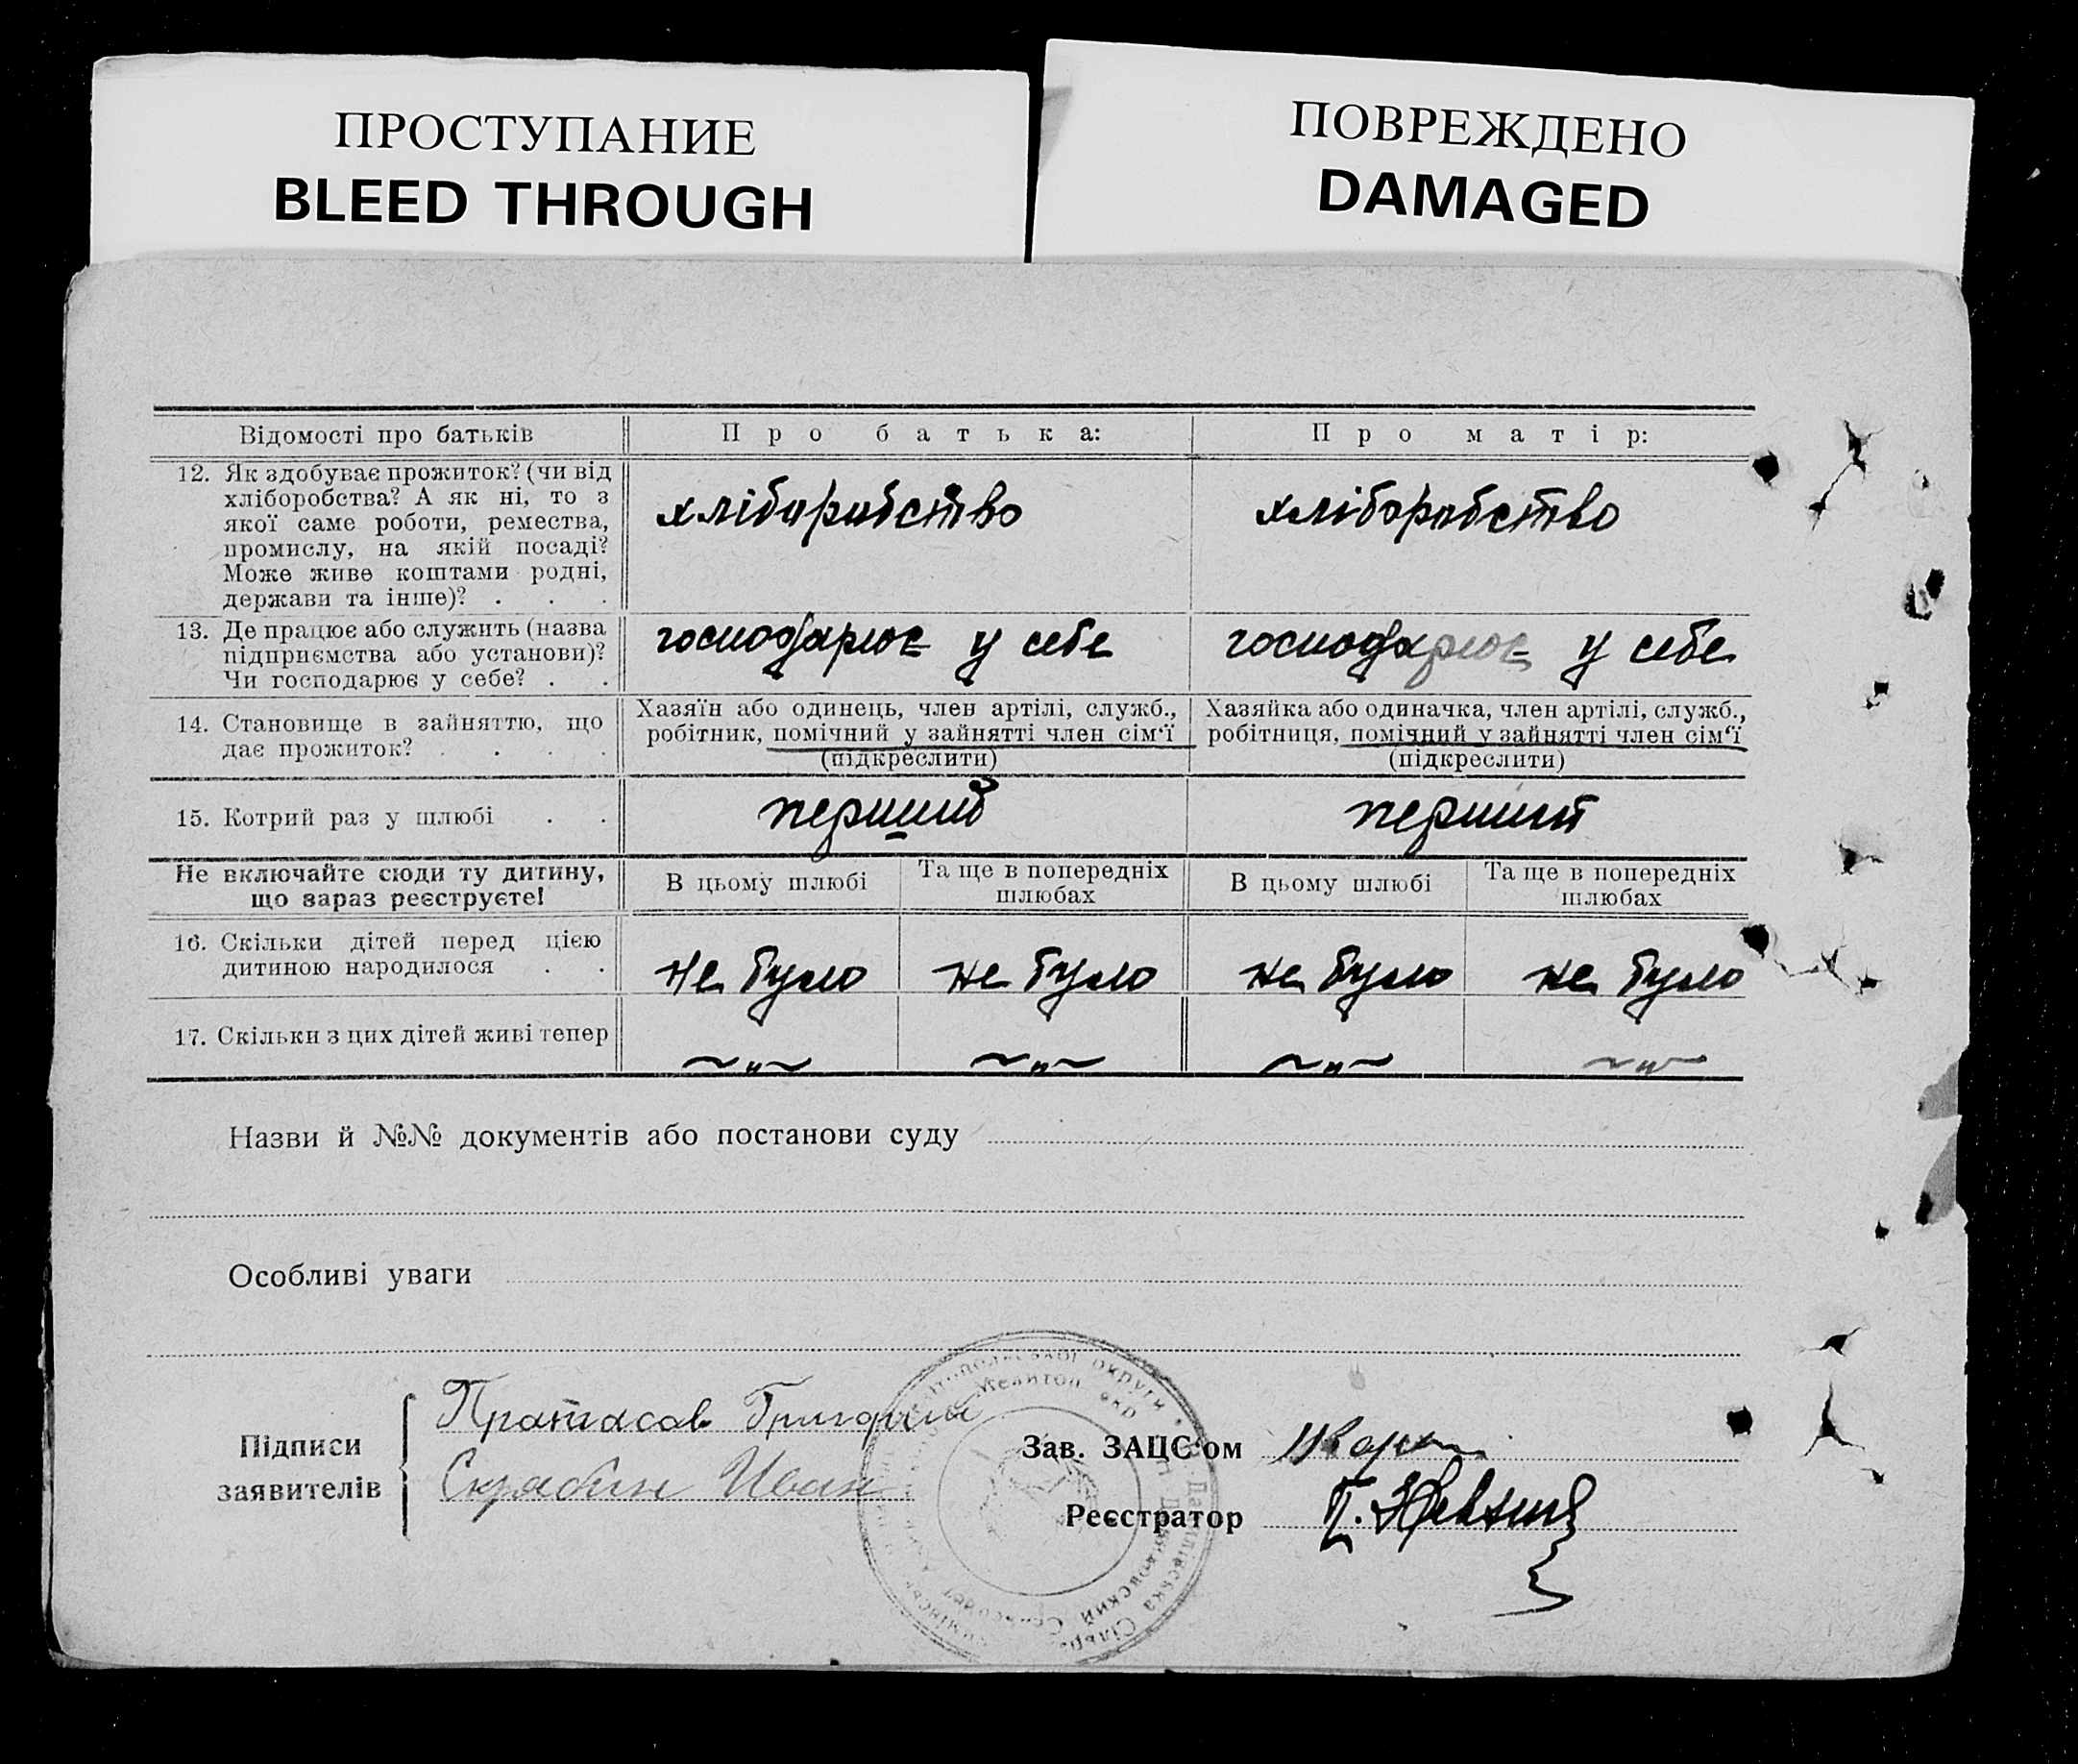 ПРОСТУПАНИЕ
BLEED THROUGH
ПОВРЕЖДЕНО
DAMAGED
Відомості про батьків
Про батька:
Про матір:
12. Як здобуває прожиток? (чи від
хліборобства? А як ні, то з
якої саме роботи, ремества,
промислу, на якій посаді?
Може живе коштами родні,
держави та інше)? . . .
хліборобство
хліборобство
13. Де працює або служить (назва
підприємства або установи)?
Чи господарює у себе? . .
господарює у себе
господарює у себе
14. Становище в зайняттю, що
дає прожиток? . . . .
Хазяїн або одинець, член артілі, служб.,
робітник, помічний у зайнятті член сім'ї
(підкреслити)
Хазяйка або одиначка, член артілі, служб.,
робітниця, помічний у зайнятті член сім'ї
(підкреслити)
15. Котрий раз у шлюбі . .
перший
перший
Не включайте сюди ту дитину,
що зараз реєструєте!
В цьому шлюбі
Та ще в попередніх
шлюбах
В цьому шлюбі
Та ще в попередніх
шлюбах
16. Скільки дітей перед цією
дитиною народилося . .
не було
не було
не було
не було
17. Скільки з цих дітей живі тепер
~"~
~"~
~"~
~"~
Назви й №№ документів або постанови суду
Особливі уваги
Підписи
заявителів
Пратасов Григорий
Скрябин Иван
Зав. ЗАЦС'ом
Реєстратор
П.